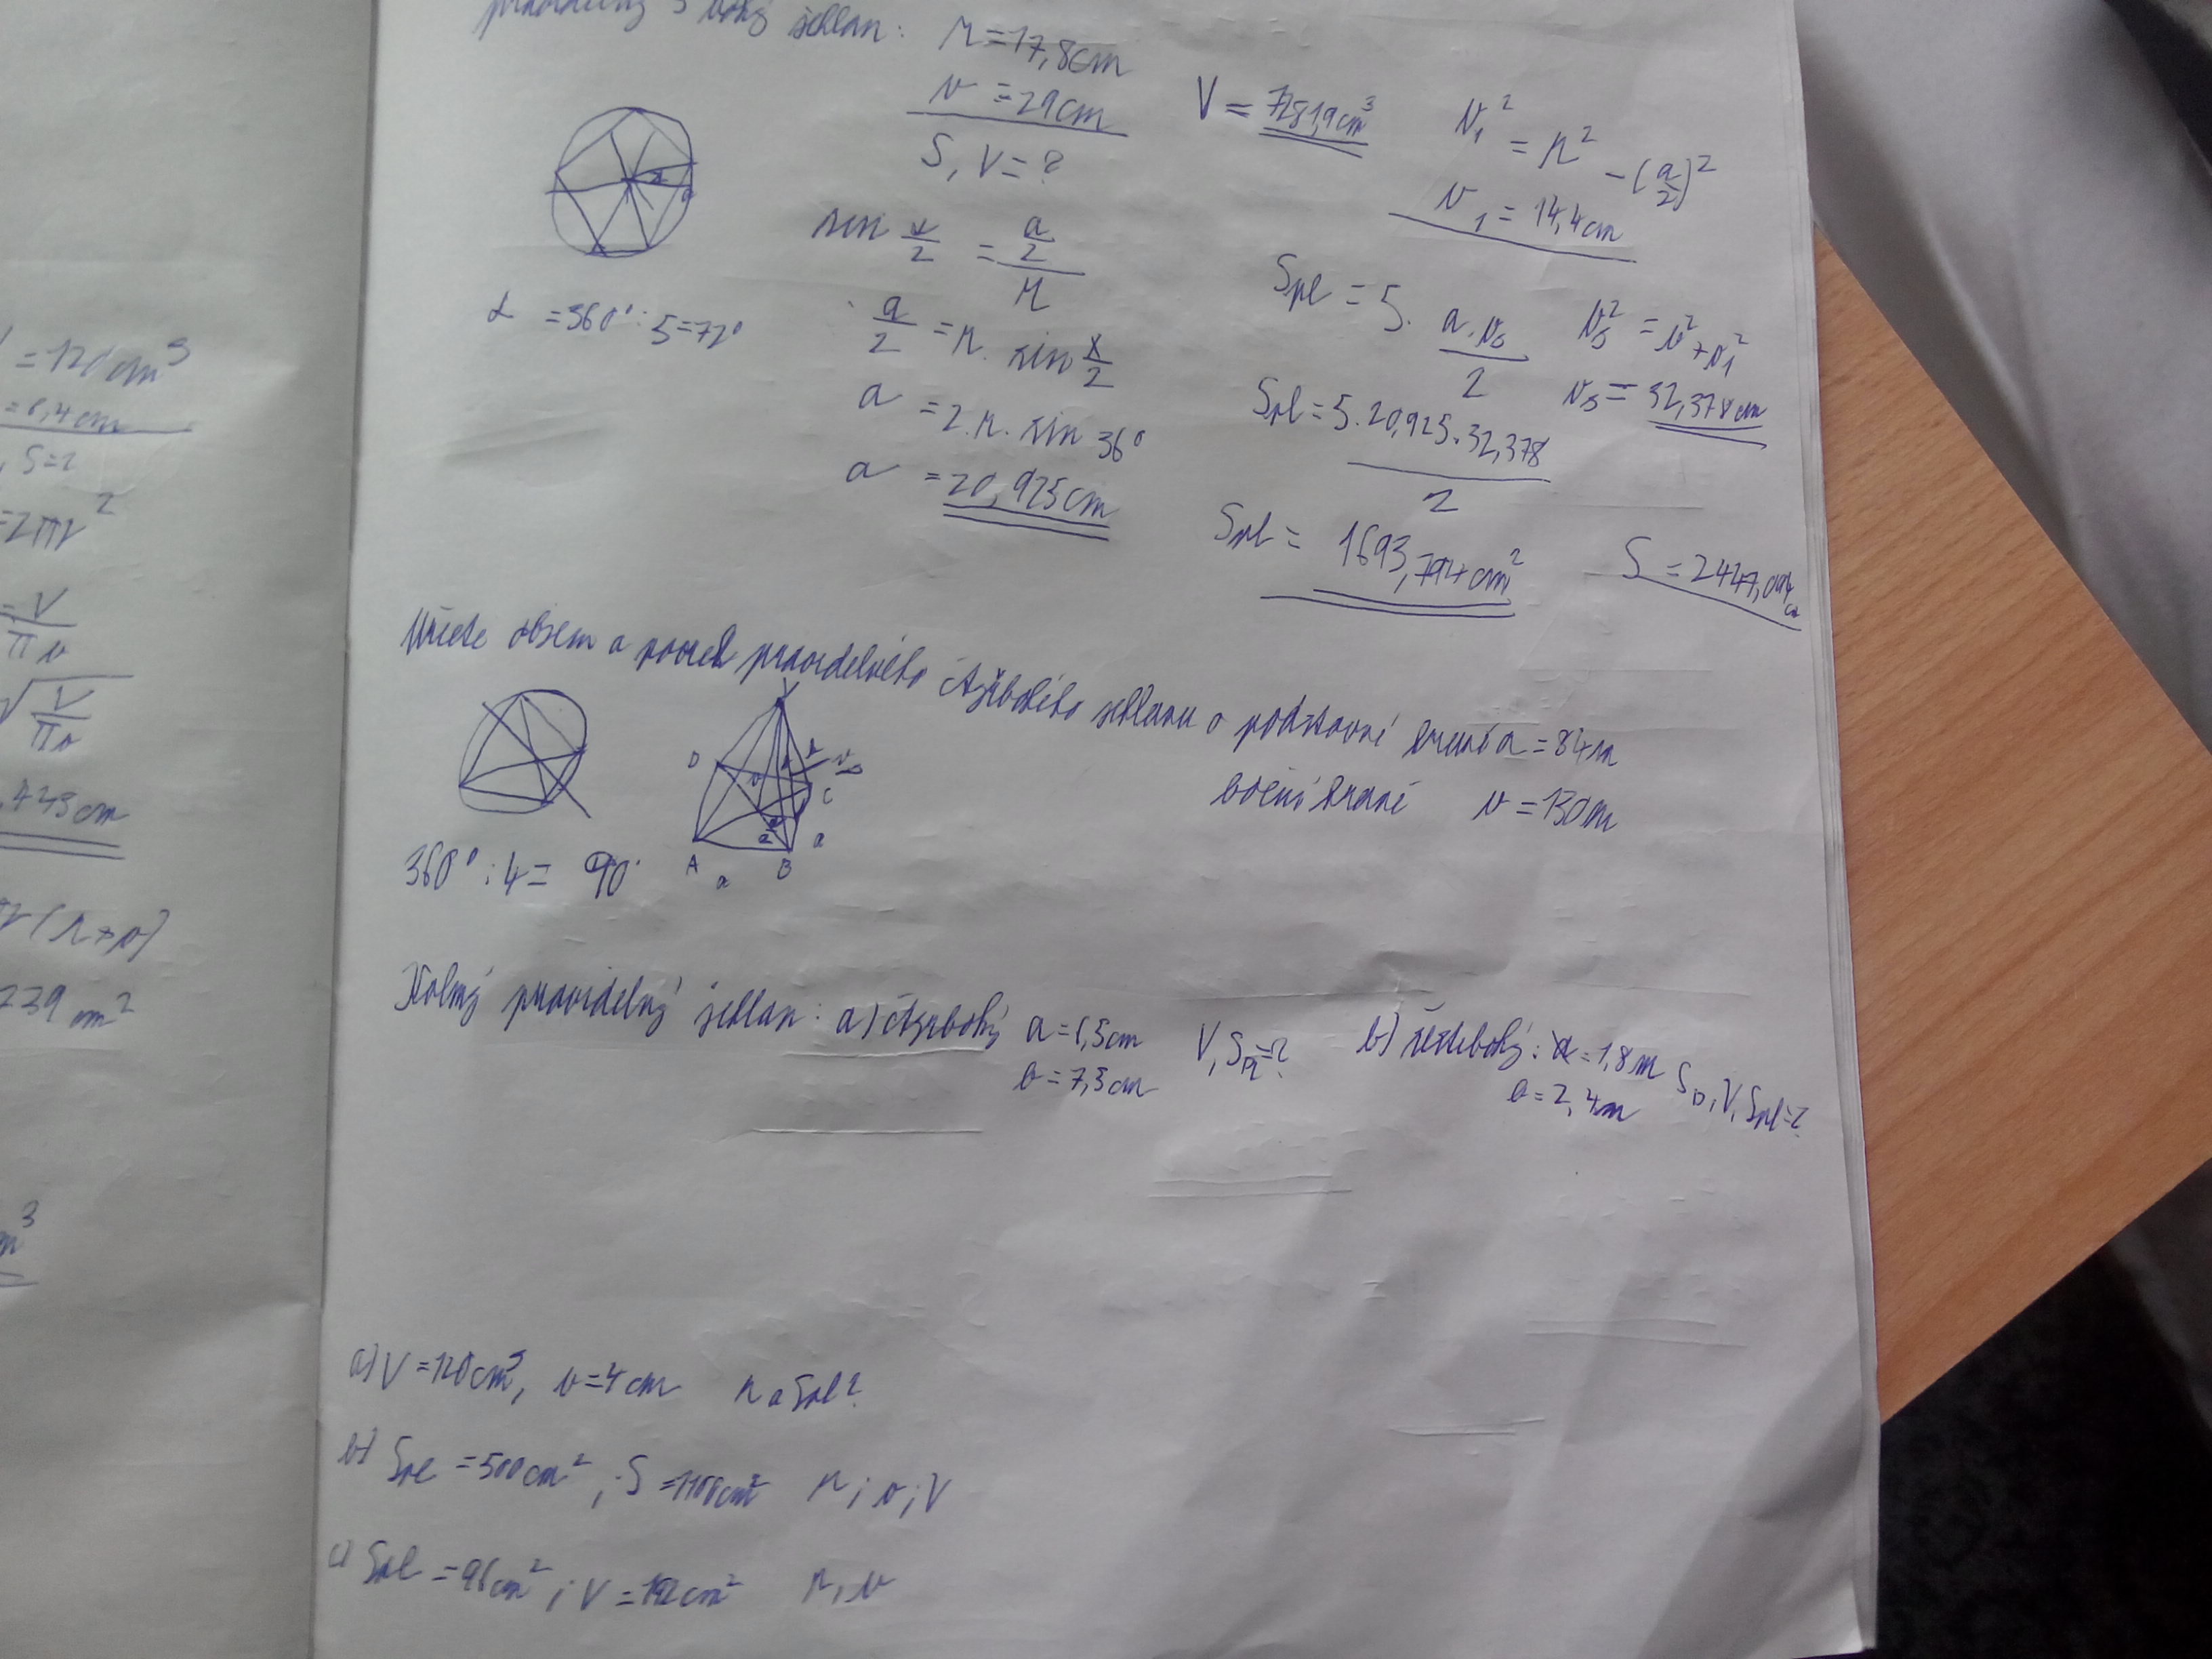 = 120 cm³
= 6,4 cm
, S = ?
= 2πr²
= V / πv
√ V / πv
,443 cm
(r+v)
239 cm²
m³
pravidelný 5 boký jehlan: r = 17,8 cm
v = 29 cm
S, V = ?
V = 7281,9 cm³
v₁² = r² - (a/2)²
v₁ = 14,4 cm
α = 360° : 5 = 72°
sin α/2 = a/2 / r
a/2 = r . sin α/2
a = 2.r. sin 36°
a = 20,925 cm
Spl = 5. a.vₛ / 2
vₛ² = v² + v₁²
vₛ = 32,378 cm
Spl = 5.20,925.32,378 / 2
Spl = 1693,794 cm²
S = 2447,094 cm
Určete obsem a povrch pravidelného čtyřbokého jehlanu o podstavní hraně a = 84 m
boční hraně v = 130 m
D C A B a a
360° : 4 = 90°
Kolmý pravidelný jehlan: a) čtyrboký a = 6,5 cm
b = 7,5 cm
V, Spl = ?
b) šestiboký: a = 1,8 m
b = 2,4 m
V, Spl = ?
a) V = 120 cm³, v = 4 cm r a Spl?
b) Spl = 500 cm², S = 1100 cm² r, v, V
c) Spl = 96 cm²; V = 192 cm² r, v